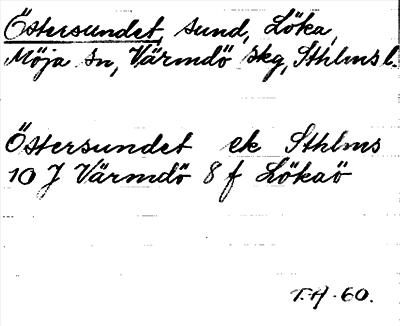 Östersundet, sund, Löka,
Möja sn, Värmdö skg, Sthlms l.
Östersundet ek Sthlms
10 J Värmdö 8 f Lökaö
T.H. 60.